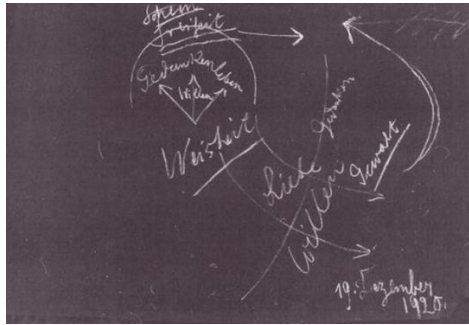 Schein
Freiheit
Gedankenleben
Willen
Weisheit
Liebe
Gedanken
Willen
Gewalt
19. Dezember
1920.